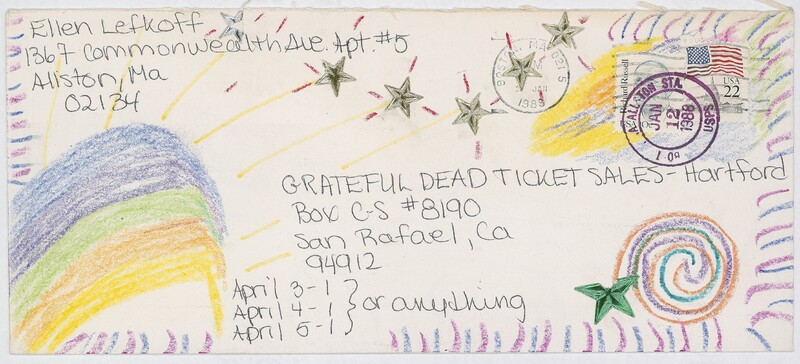 Ellen Lefkoff
1367 Commonwealth Ave. Apt. #5
Allston, Ma
02134
BOSTON, MA
JAN
1988
Richard Russell
USA
22
ALLSTON STA.
JAN
12
1988
USPS
GRATEFUL DEAD TICKET SALES - Hartford
Box C-S #8190
San Rafael, Ca
94912
April 3-1
April 4-1 } or anything
April 5-1